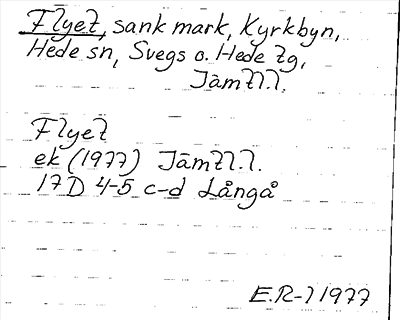 Flyet, sank mark, Kyrkbyn,
Hede sn, Svegs o. Hede tg,
Jämtl.l.
Flyet
ek (1977) Jämtl.l.
17D 4-5 c-d Långå
E.R-l 1977